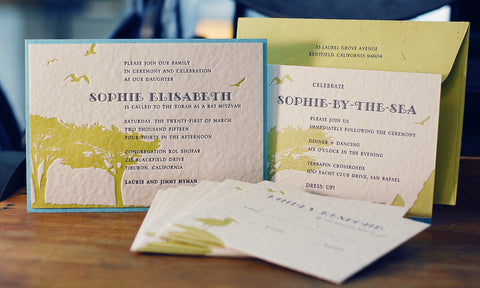 PLEASE JOIN OUR FAMILY
IN CEREMONY AND CELEBRATION
AS OUR DAUGHTER
SOPHIE ELISABETH
IS CALLED TO THE TORAH AS A BAT MITZVAH
SATURDAY, THE TWENTY-FIRST OF MARCH
TWO THOUSAND FIFTEEN
FOUR-THIRTY IN THE AFTERNOON
CONGREGATION KOL SHOFAR
215 BLACKFIELD DRIVE
TIBURON, CALIFORNIA
LAURIE AND JIMMY HYMAN
53 LAUREL GROVE AVENUE
KENTFIELD, CALIFORNIA 94904
CELEBRATE
SOPHIE-BY-THE-SEA
PLEASE JOIN US
IMMEDIATELY FOLLOWING THE CEREMONY
DINNER + DANCING
SIX O'CLOCK IN THE EVENING
TERRAPIN CROSSROADS
100 YACHT CLUB DRIVE, SAN RAFAEL
DRESS: UP!
KINDLY RESPOND